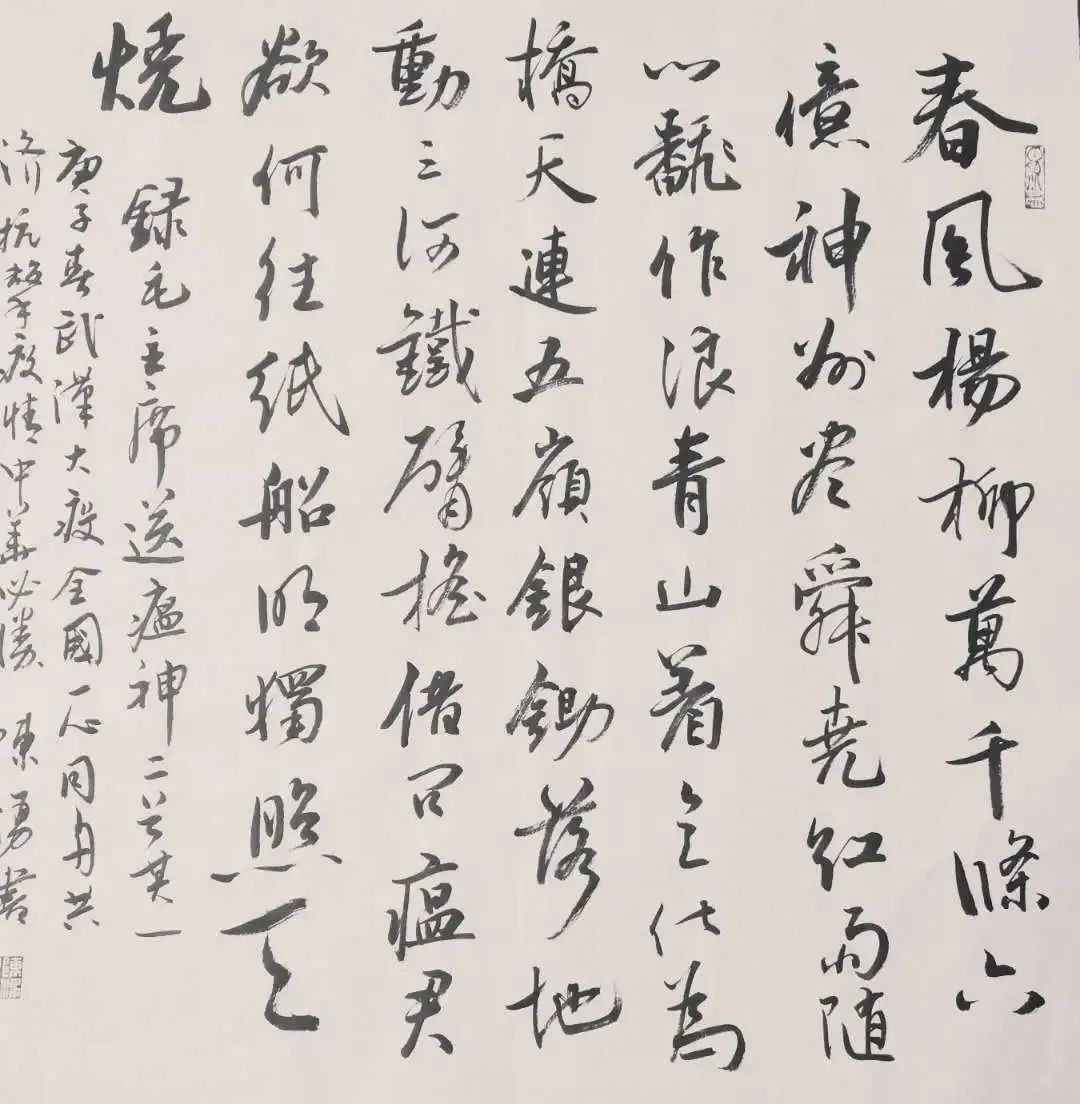 春風楊柳萬千條六
億神州尽舜堯紅雨随
心翻作浪青山着意化為
橋天連五嶺銀鋤落地
動三河鐵臂搖借問瘟君
欲何往紙船明燭照天
燒
錄毛主席送瘟神二首其一
庚子春武漢大疫全國一心同舟共
濟抗擊疫情中華必勝 陳 書